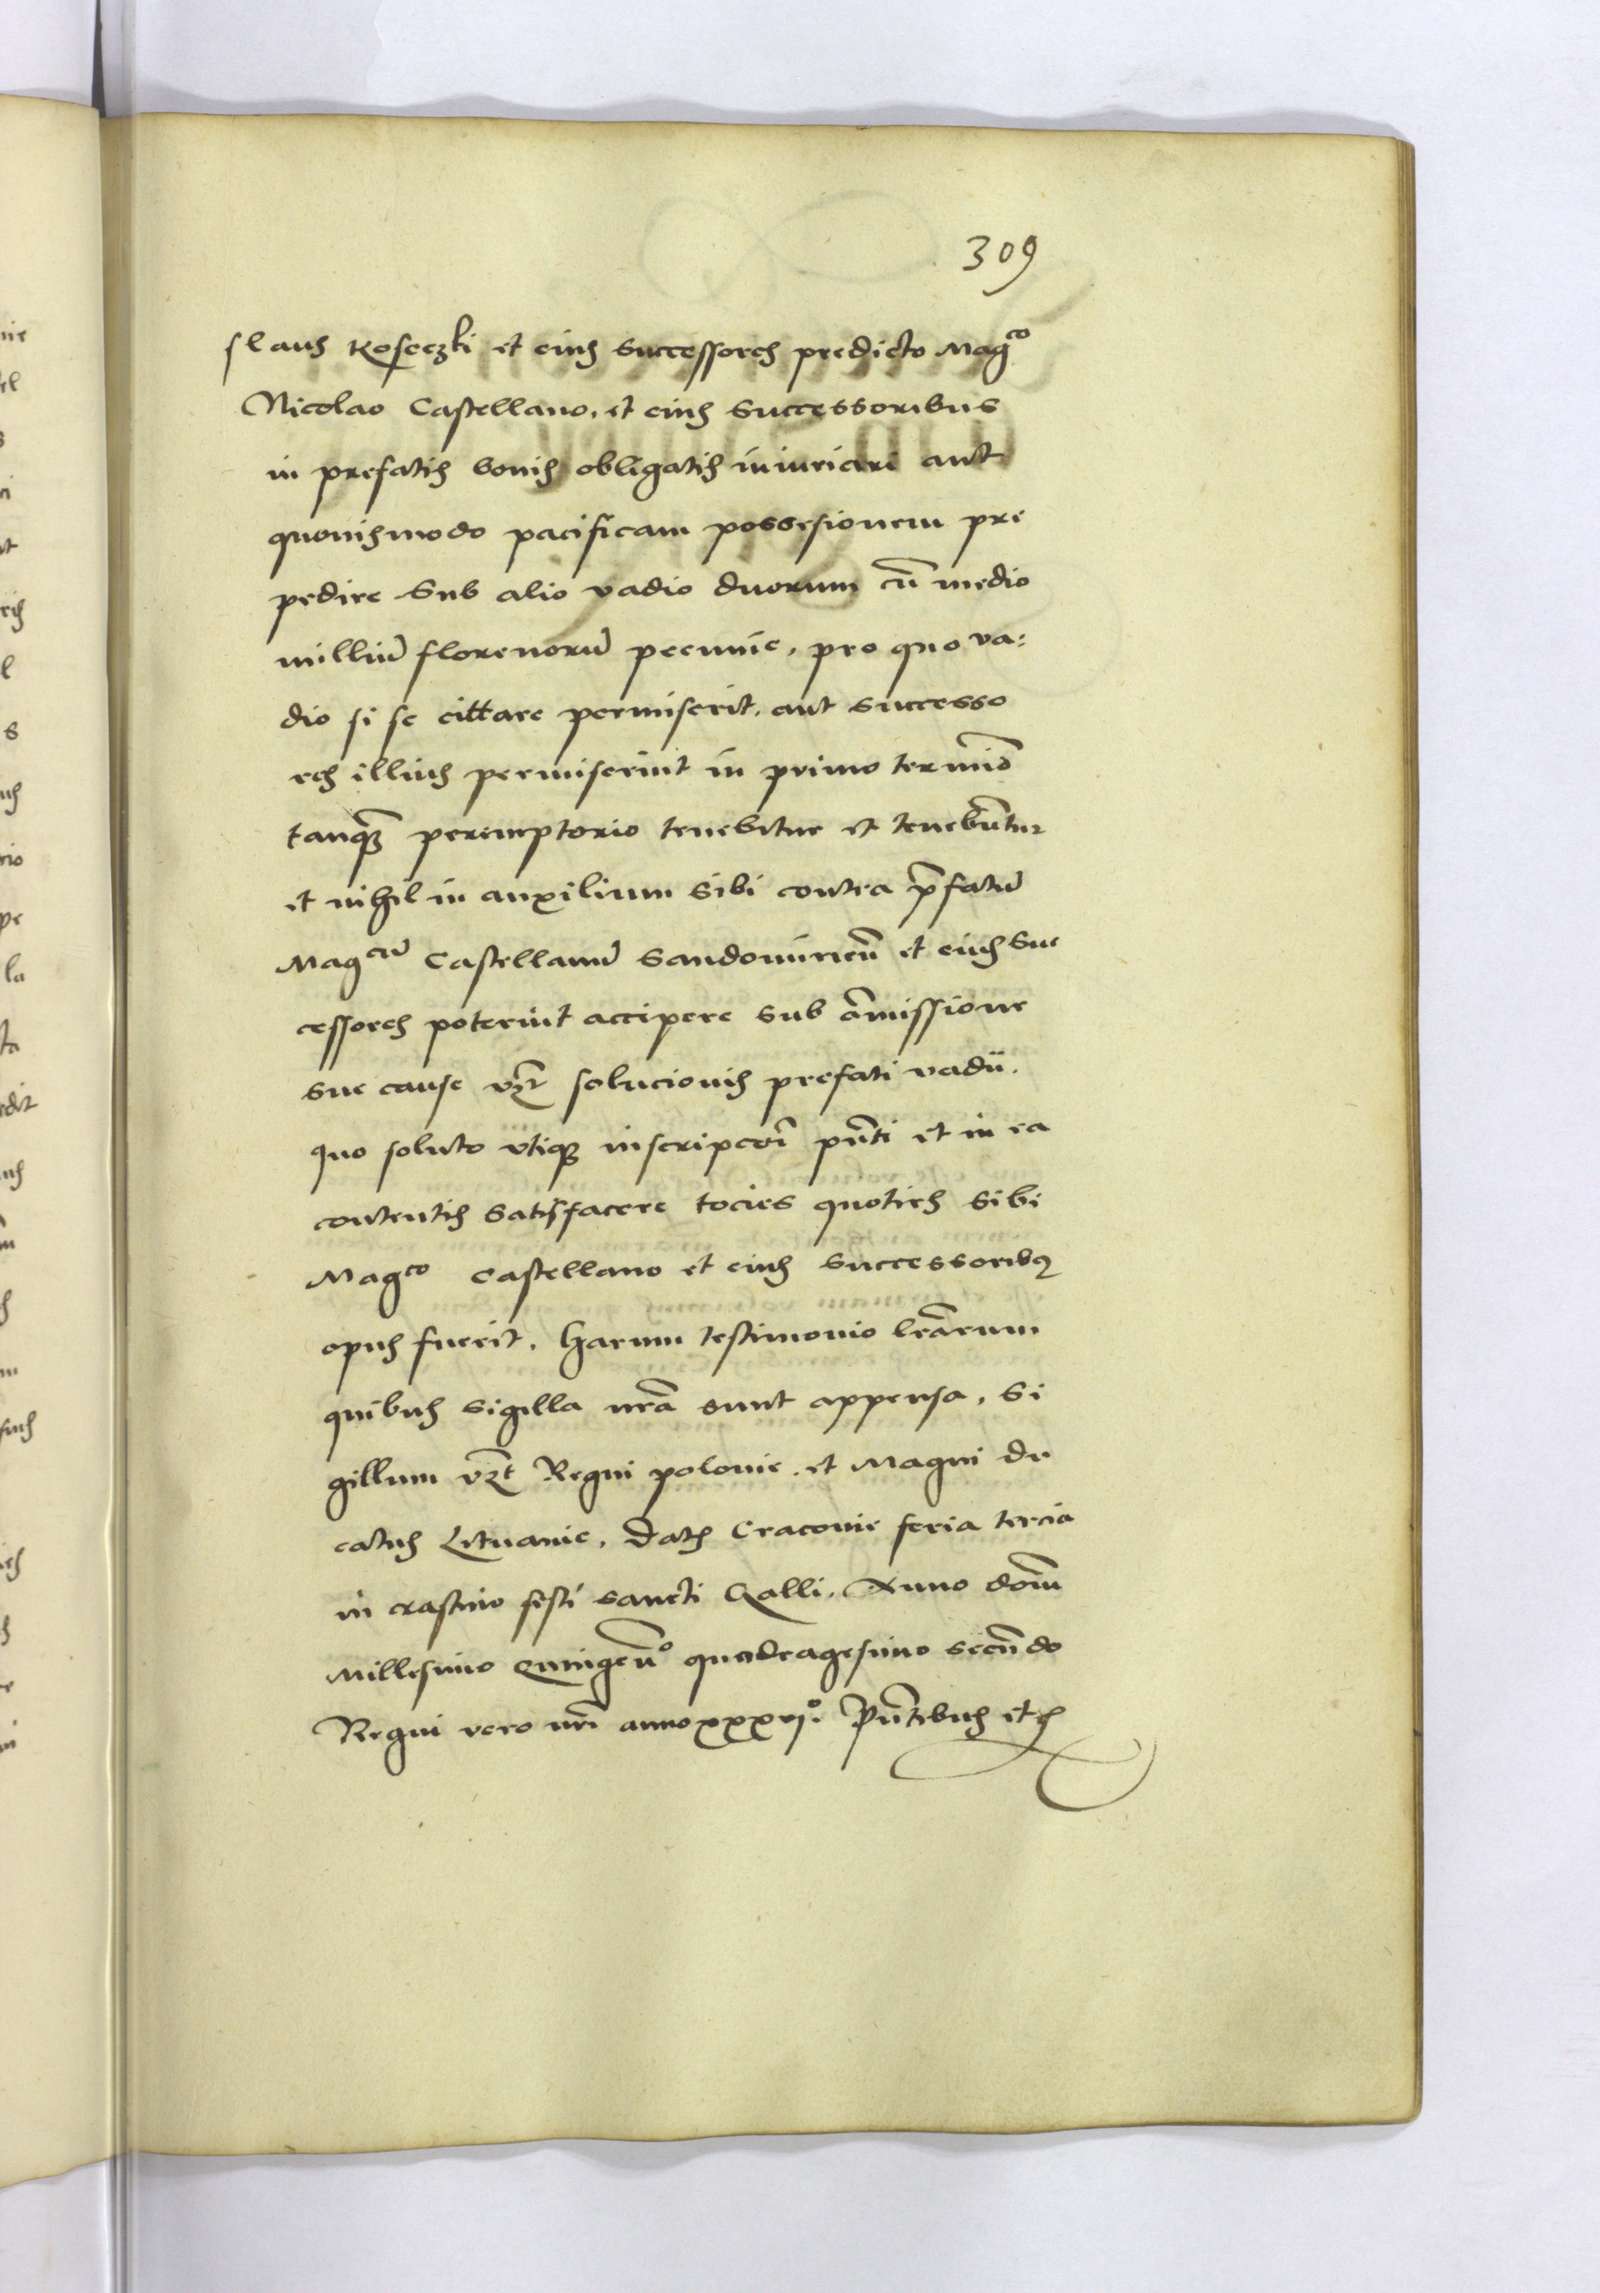 309
slaus Koseczki et eius successores predicto Magco
Nicolao Castellano, et eius successoribus
in prefatis bonis obligatis iniuriari aut
quouismodo pacificam possesionem pre
pedire sub alio vadio duorum cũ medio
milliũ florenorũ pecunie, pro quo va:
dio si se cittare permiserit, aut successo
res illius permiserint in primo termiõ
tanq̃ peremptorio tenebitur et tenebũtur
et nihil in auxilium sibi contra p̃fatũ
Magcũ Castellanũ Sandomirieñ et eius suc
cessores poterint accipere sub ãmissione
sue cause vz̃t solucionis prefati vadii.
quo soluto vtiq̃ inscripcõi pñti et in ea
contentis satisfacere tocies quoties sibi
Magco Castellano et eius successoribus
opus fuerit. Harum testimonio lr̃arum
quibus sigilla nr̃a sunt appensa, Si
gillum vz̃t Regni polonie, et Magni du
catus Lituanie, Dat Cracovie feria tercia
in crastino festi sancti Galli. Anno doñi
Millesimo Quingenº quadragesimo secũdo
Regni vero nr̃i anno xxxvjº. Pñtibus etc